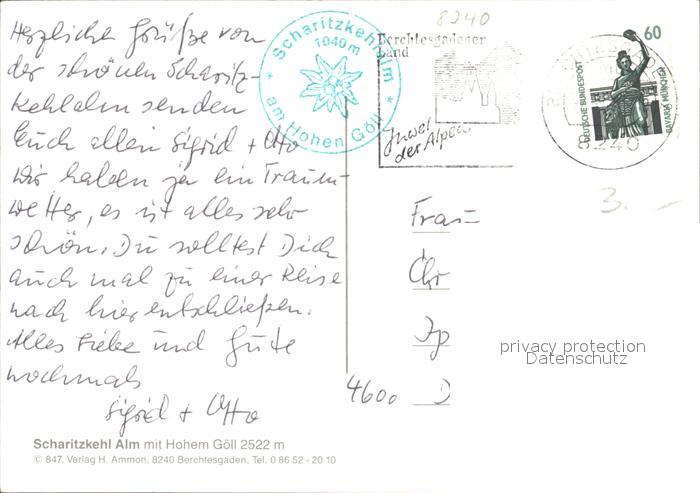 Herzliche Grüße von
der schönen Scharitz-
kehlalm senden
Euch allen Sigrid + Otto
Wir haben ja ein Traum-
wetter, es ist alles sehr
schön. Du solltest Dich
auch mal zu einer Reise
nach hier entschließen.
Alles Liebe und Gute
nochmals
Sigrid + Otto
Scharitzkehl Alm mit Hohem Göll 2522 m
© 847, Verlag H. Ammon, 8240 Berchtesgaden, Tel. 0 86 52 - 20 10
Scharitzkehlalm
1040 m
am Hohen Göll
8240
Berchtesgadener
Land
Juwel
der Alpen
8240
60
DEUTSCHE BUNDESPOST
BAVARIA MÜNCHEN
3.-
Frau
Chr
4600 D
privacy protection
Datenschutz